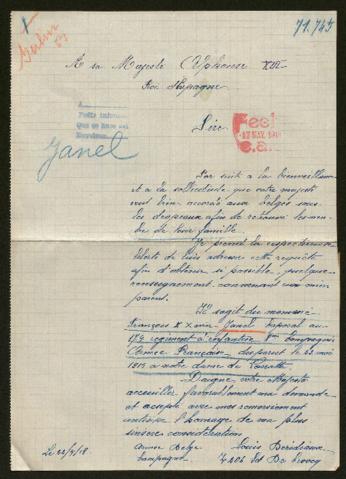 X
71.745
Berlin
A sa Majesté Alphonse XIII
Roi d'Espagne
Janel
Sire
17 MAY. 1918
Par suit a la bienveillance
et a la sollicitude que votre majesté
veut bien accordé aux belges sous
les drapeaux afin de
de leur famille.
Je prend la respectueuse
liberté de lui adressé cette requête
afin d'obtenir si possible quelque
renseignement concernant mon
parent.
Il sagit du nommé
François Janel caporal au
régiment d'infanterie 8me Compagnie
Armée Française disparut le 23 mai
1915 a notre dame de Lorette
Daigne votre Majesté
accueillir favorablement ma demande
et accepté avec mes remerciement
anticipé l'homage de ma plus
sincère considération
Armée Belge
Campagne
Louis